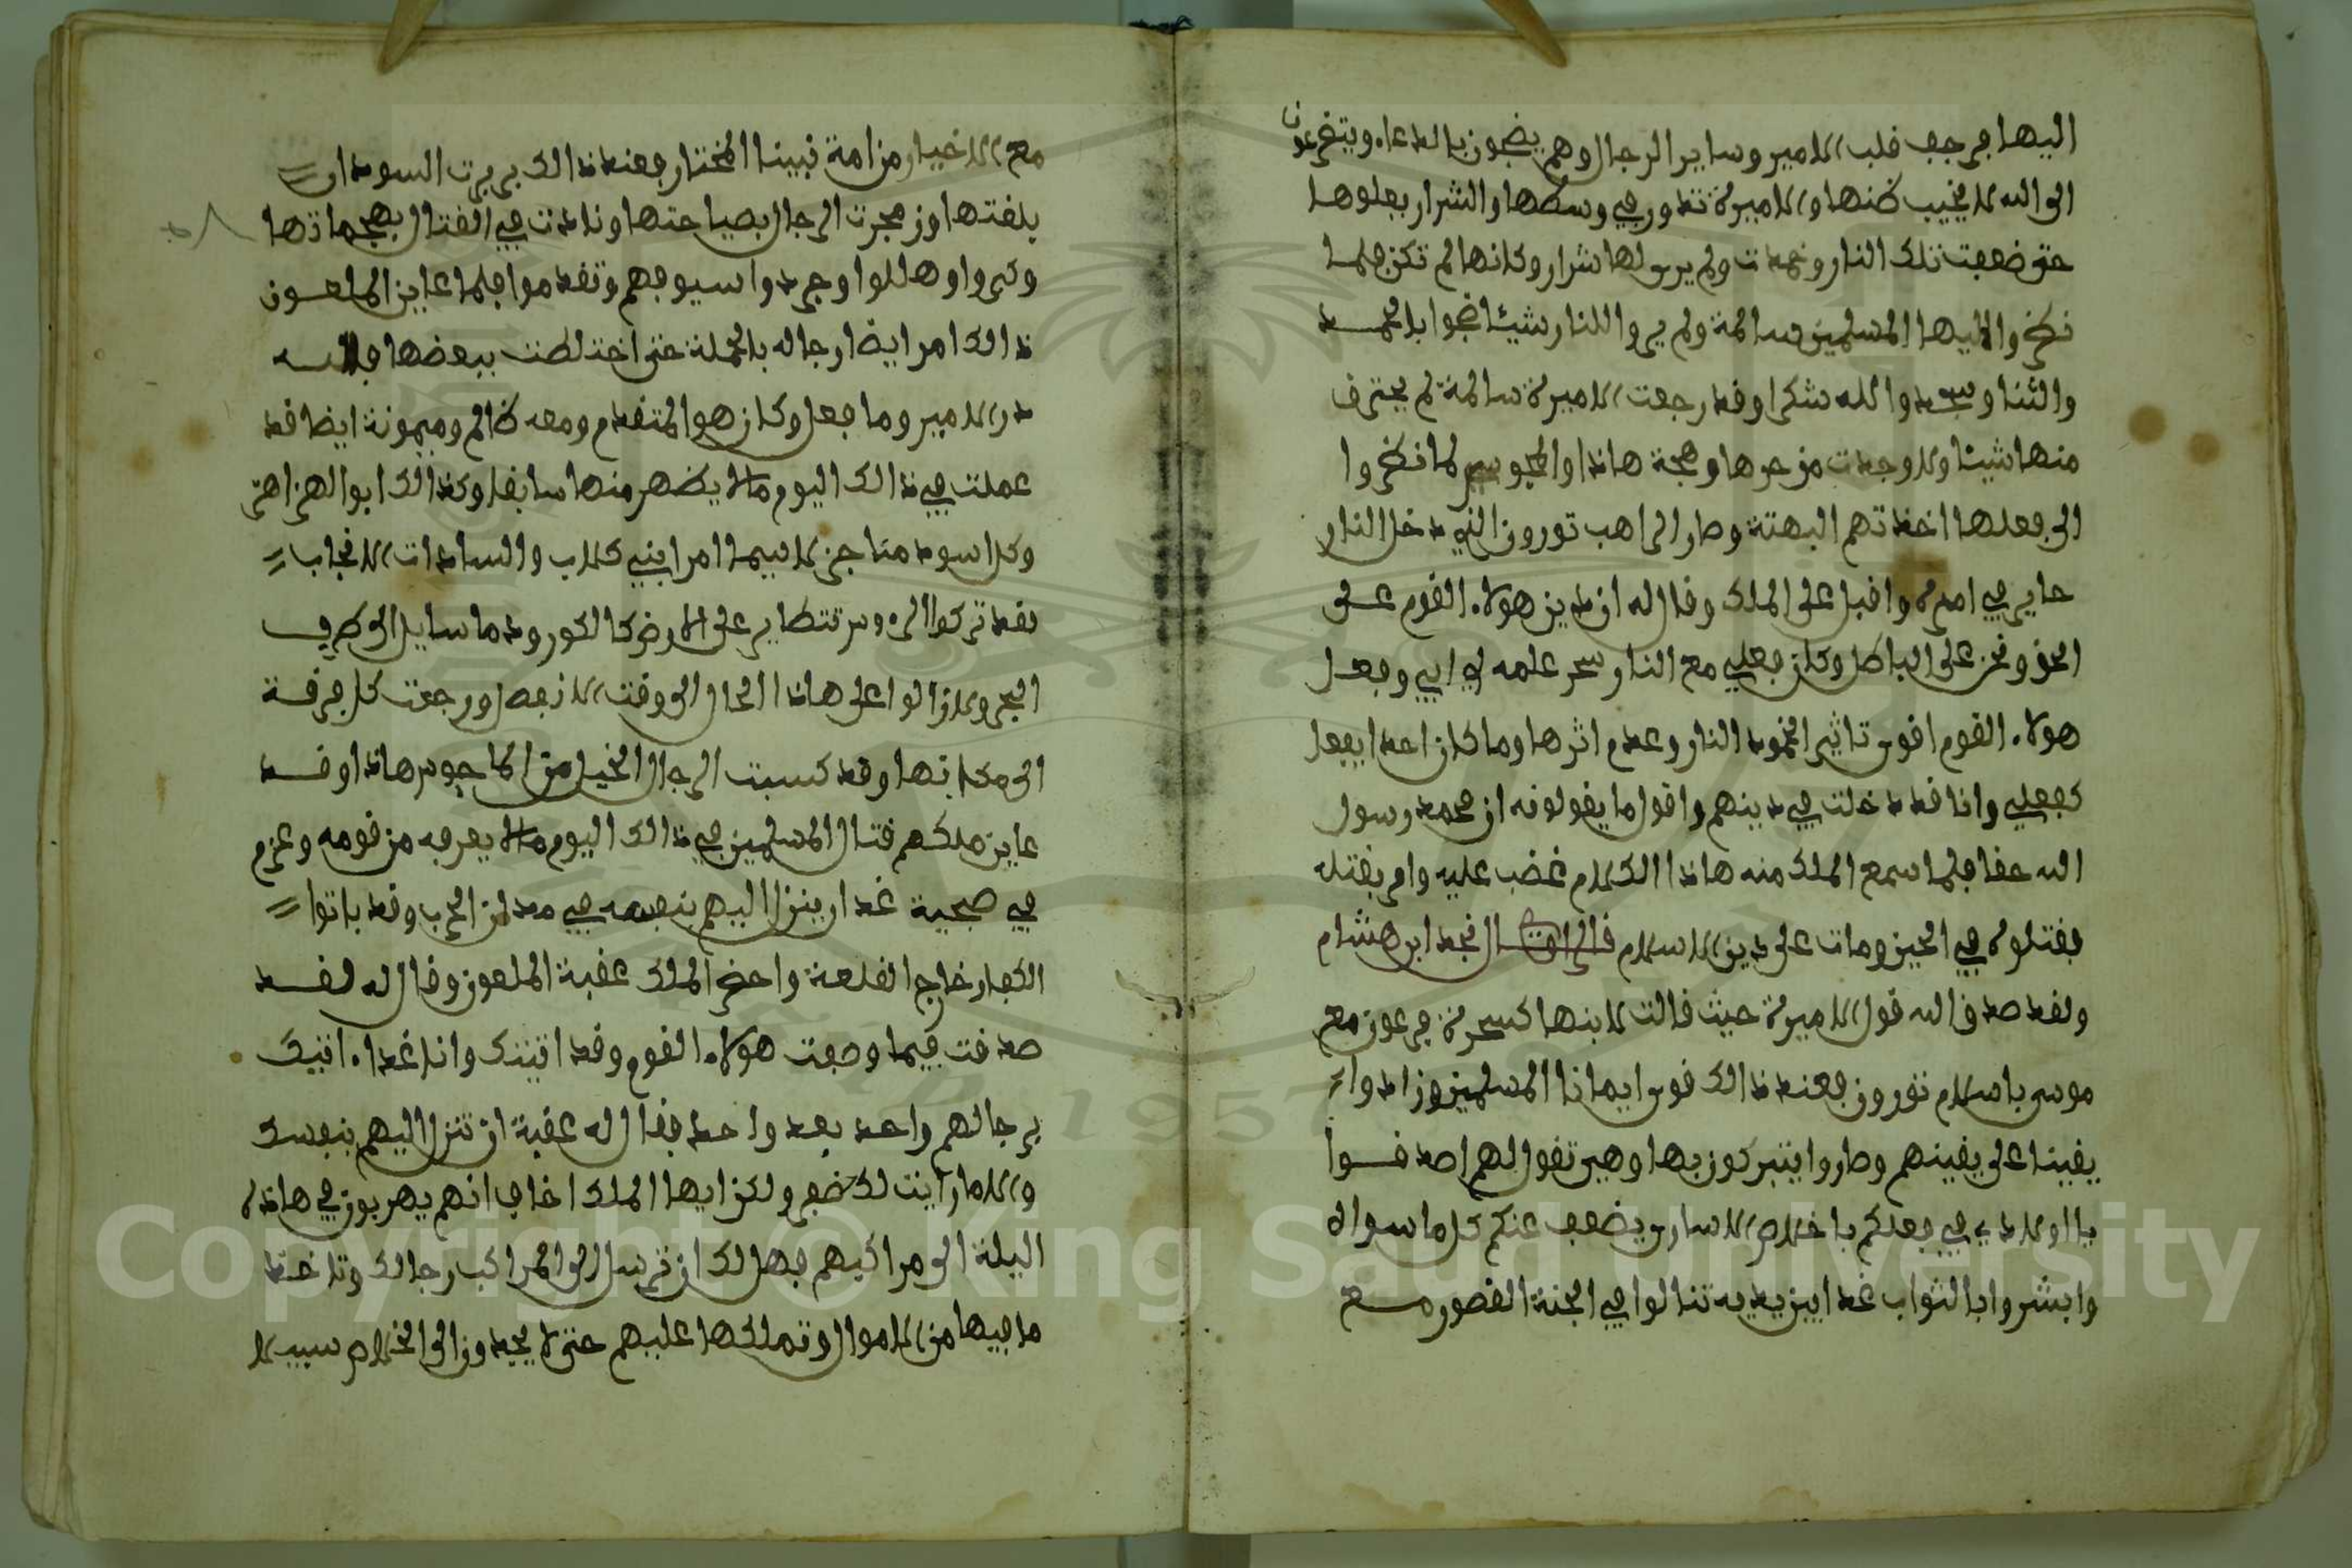 اليها فرجف قلب الامير وساير الرجال وهم يضجون بالدعاء ويتضرعون
الى الله لا يخيب ظنها والاميرة تدور في وسطها والشرار يعلوها
حتى ضعفت تلك النار وخمدت ولم يرى لها شرار وكانها لم تكن فلما
نظروا اليها المسلمين سالمة ولم يروا للنار شيئا ضجوا بالحمد
والثنا وسجدوا لله شكرا وقد رجعت الاميرة سالمة لم يحترق
منها شيئا ولا وجدت من حرها وهجة هاذا والمجوس لما نظروا
الى فعلها اخذتهم البهتة وصار الراهب تورون الذي دخل النار
حاير في امره واقبل على الملك وقال له ان دين هولاء القوم على
الحق ونحن على الباطل وكان فعلي مع النار سحر علمه لي ابي وفعل
هولاء القوم اقوى تاثيرا لخمود النار وعدم اثرها وما كان احدا يفعل
كفعلي وانا قد دخلت في دينهم واقول ما يقولونه ان محمد رسول
الله حقا فلما سمع الملك منه هاذا الكلام غضب عليه وامر بقتله
فقتلوه في الحين ومات على دين الاسلام قال نجد ابن هشام
ولقد صدق الله قول الاميرة حيث قالت لابنها كسحرة فرعون مع
موسى باسلام تورون فعند ذالك قوى ايمانا المسلمين وزادوا
يقينا على يقينهم وصاروا يتبركون بها وهي تقول لهم اصدقوا
يا اولادي في فعلكم باخلاص الاسارى يضعف عنكم كل ما سواه
وابشروا بالثواب غدا بين يديه تنالوا في الجنة القصور مع
مع الاخيار من امة نبينا المختار فعند ذالك بربرت السودان
بلغتها وزمجرت الرجال بصياحتها ونادت في القتال بهجماتها
وكبروا وهللوا وجردوا سيوفهم وتقدموا فلما عاين الملعون
ذالك امر ايضا رجاله بالحملة حتى اختلطت ببعضها فلله
در الامير وما فعل وكان هو المتقدم ومعه ظالم وميمونة ايضا قد
عملت في ذالك اليوم مالا يظهر منها سابقا وكذالك ابو الهزاهز
وكل اسود مناجز لا سيما امرا بني كلاب والسادات الانجاب
فقد تركوا الروس تتطاير على الارض كالكور ودما سايل الى طرف
البحر ولا زالوا على هاذا الحال الى وقت الانفصال ورجعت كل فرقة
الى مكانها وقد كسبت الرجال الخيل من الماجوس هاذا وقد
عاين ملكهم قتال المسلمين في ذالك اليوم مالا يعرفه من قومه وعزم
في صبحية غدا ان ينزل اليهم بنفسه في معدن الحرب وقد باتوا
الكفار خارج القلعة واحضر الملك عقبة الملعون وقال له لقد
صدقت فيما وصفت هولاء القوم وقد اتيتك وانا غداء اتيك
برجالهم واحد بعد واحد فقال له عقبة ان تنزل اليهم بنفسك
والا ما رايت لك ضفر ولكن ايها الملك اخاف انهم يهربون في هاذه
اليلة الى مراكبهم فهل لك ان ترسل الى المراكب رجالك وتاخذ
ما فيها من الاموال وتملكها عليهم حتى لا يجدون الى الخلاص سبيلا
Copyright © King Saud University
1957